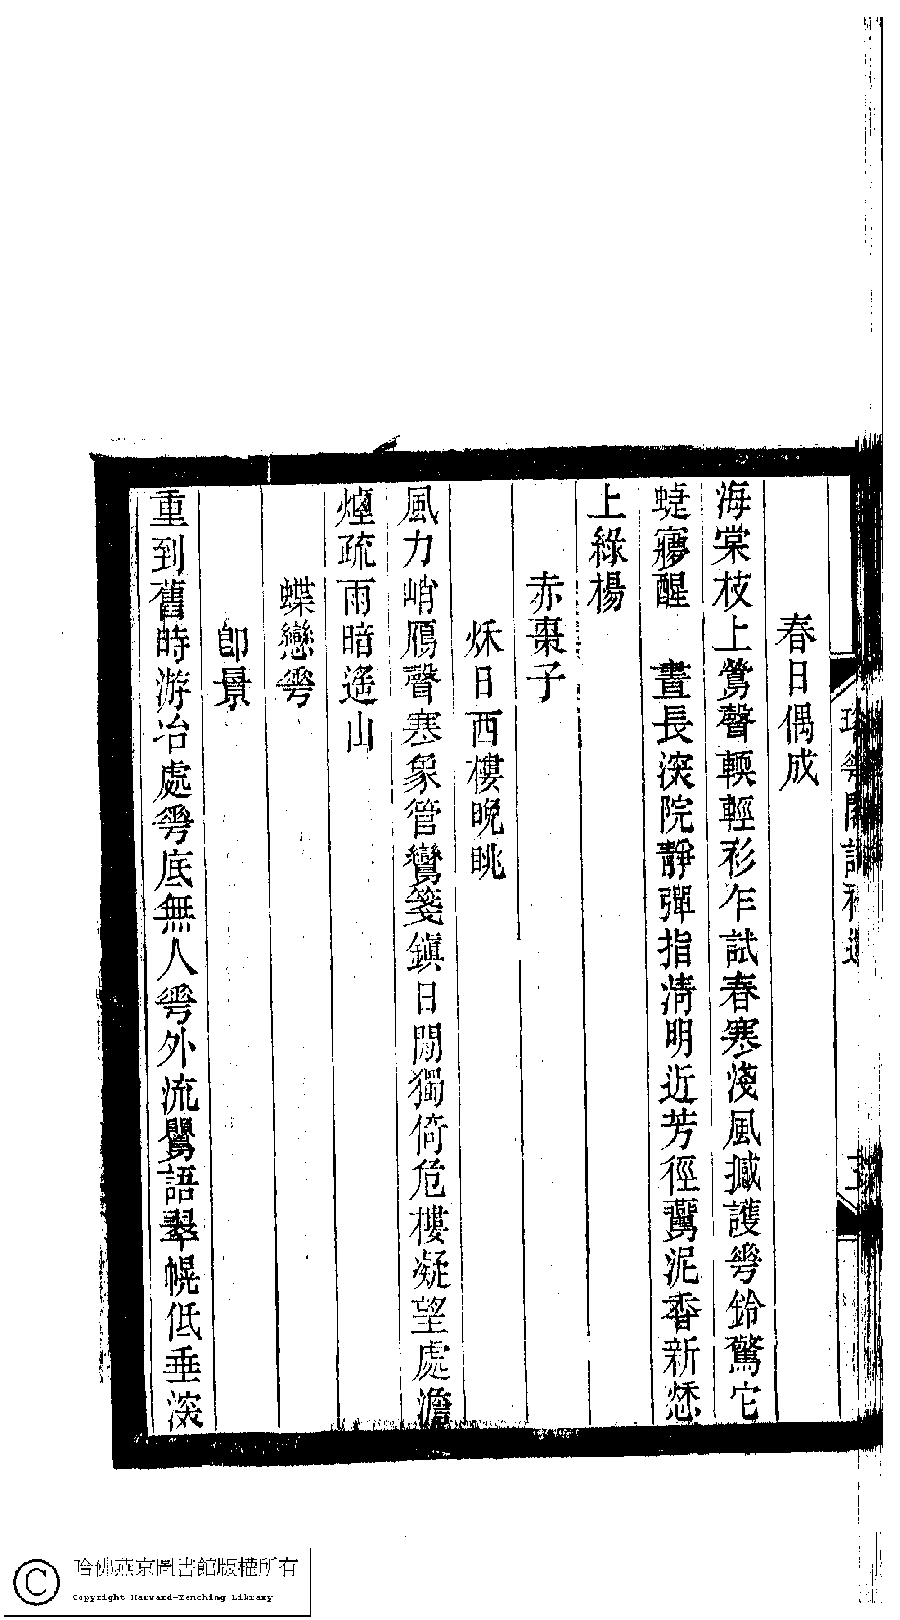 春日偶成
海棠枝上鶯聲輭輕衫乍試春寒淺風撼護雩鈴驚它
蜨㝱醒　晝長湥院靜彈指清明近芳徑鷰泥香新愁
上綠楊
赤棗子
秌日西樓晚眺
風力峭鴈聲寒象管鸞箋鎮日閒獨倚危樓凝望處澹
煙疏雨暗遙山
蝶戀雩
卽景
重到舊時游冶處雩底無人雩外流鸎語翠幌低垂湥
哈佛燕京圖書館版權所有
Copyright Harvard-Yenching Library